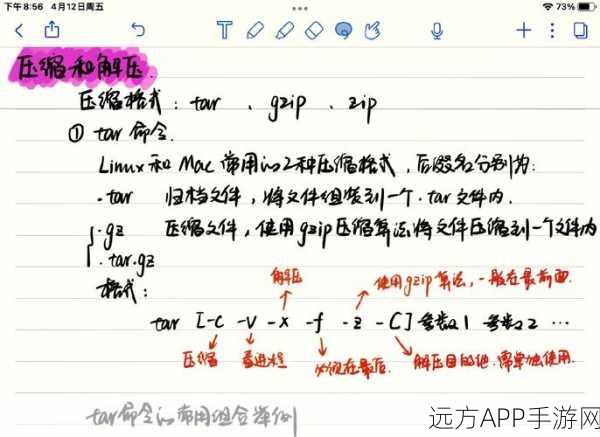 下午8:56 4月12日周五
73%
压缩和解压
压缩格式：tar、gzip、zip
① tar 命令.
Linux 和 Mac 常用的2种压缩格式，后缀名分别为：
.tar 归档文件，将文件组装到一个.tar文件内.
.gz 压缩文件，使用gzip压缩算法将文件压缩到一个文件内
.tar.gz
格式：
解压
使用gzip算法，一般在最前面.
tar [-c -v -x -f -z -C] 参数1 参数2 …
压缩 看进程 必须在最后. 解压目的地.需单独使用.
tar命令的常用组合举例
远方APP手游网